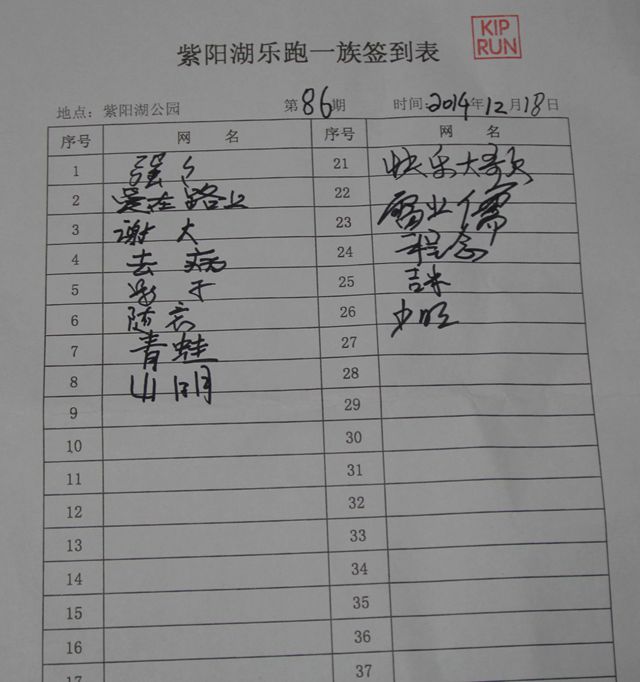 KIP
RUN
紫阳湖乐跑一族签到表
地点：紫阳湖公园 第86期 时间：2014年12月18日
序号 网 名 序号 网 名
1 强 21 快乐大哥
2 爱在路上 22
3 谢大 23
4 去病 24
5 25 吉米
6 随衣 26 少旺
7 青蛙 27
8 山明 28
9 29
10 30
11 31
12 32
13 33
14 34
15 35
16 36
17 37